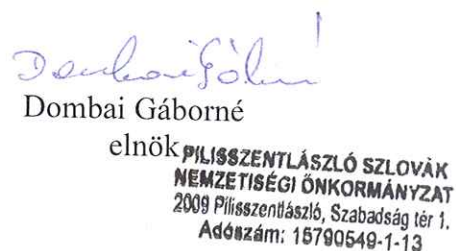 Dombai Gáborné
Dombai Gáborné
elnök
PILISSZENTLÁSZLÓ SZLOVÁK
NEMZETISÉGI ÖNKORMÁNYZAT
2009 Pilisszentlászló, Szabadság tér 1.
Adószám: 15790549-1-13